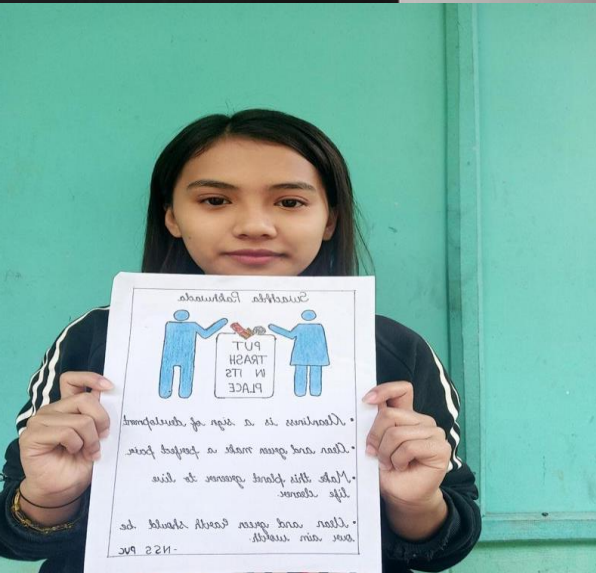 Swachhta Pakhwada
PUT
TRASH
IN ITS
PLACE
• Cleanliness is a sign of development
• Clean and green make a perfect pair.
• Make this planet greener to live
life cleaner.
• Clean and green Earth should be
our aim
-NSS PVC